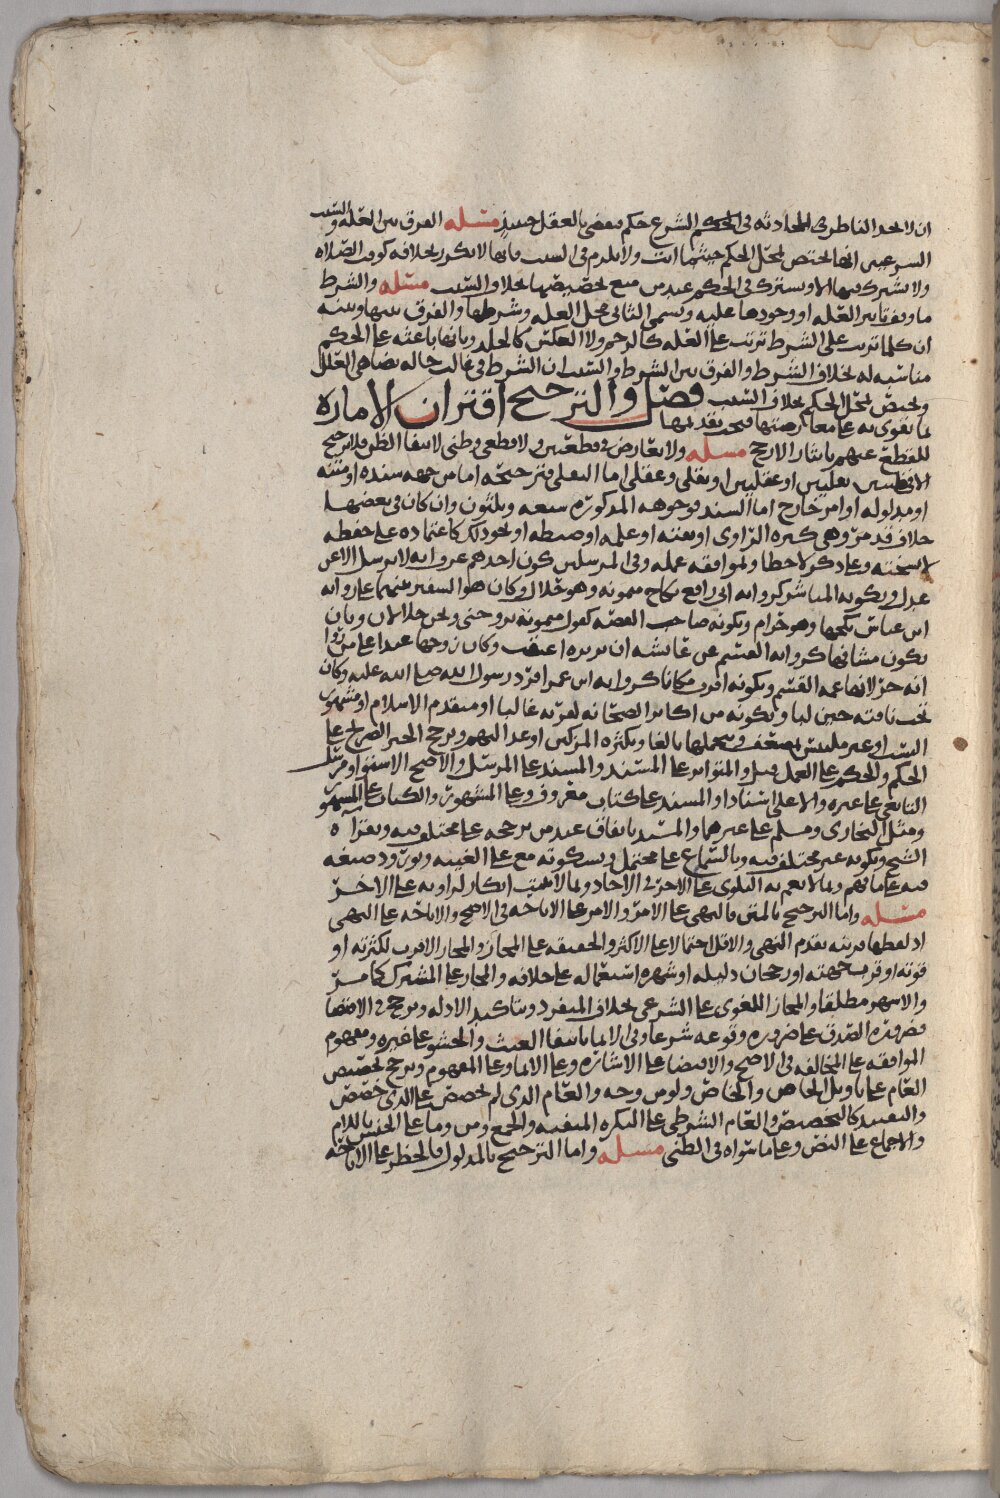 ان لا يجد الناظر في الحادثه في الحكم الشرع حكم يقضي بالعقل حينئذ مسئله الفرق بين العله والسبب
الشرعيين انها تختص بمحل الحكم حيثما اتت ولا يلزم في السبب وانها لا تكرر بخلافه كوقت الصلاه
ولا تشترك فيها الا ويشترك في الحكم عند من منع تخصيصها بخلاف السبب مسئله والشرط
ما وقف تاثير العله او وجودها عليه ويسمى الثاني محل العله وشرطها والفرق بينها وبينه
ان كلما ترتب على الشرط ترتب على العله كالرجم ولا العكس كالجلد وبانها باعثه على الحكم
مناسبه له بخلاف الشرط والفرق بين الشرط والسبب ان الشرط في غالب حاله يضاهي العلل
ويختص بمحل الحكم بخلاف السبب فصل والترجيح اقتران الاماره
لما تقوى به على معارضتها فيجب تقديمها
للقطع عنهم بايثار الارجح مسئله ولا تعارض في قطعيين ولا قطعي وظني لانتفا الظن فلا ترجيح
الا في ظنيين نقليين او عقليين او نقلي وعقلي اما النقلي فترجيحه اما من جهه سنده او متنه
او مدلوله او امر خارج اما السند فوجوهه المذكوره سبعه وثلثون وان كان في بعضها
خلاف قد مر وهي كثره الراوي او ثقته او علمه او ضبطه او نحو ذلك كاعتماده على حفظه
لا نسخته وعلى ذكر لا خط او لموافقه عمله وفي المرسلين كون احدهم عرف انه لا يرسل الا عن
عدل وبكونه المباشر كروايه ابي رافع نكاح ميمونه وهو حلال وكان هو السفير بينهما على روايه
ابن عباس نكحها وهو حرام وبكونه صاحب القصه كقول ميمونه تزوجني ونحن حلالان وبان
يكون مشافها كروايه القسم عن عائشه ان بريره اعتقت وكان زوجها عبدا على من روا
انه حر لانها عمه القسم وبكونه اقرب مكانا كروايه ابن عمر افرد رسول الله صلى الله عليه وكان
تحت ناقته حين لبا وبكونه من اكابر الصحابه لقربه غالبا او متقدم الاسلام او مشهور
النسب او غير ملتبس بمضعف وبتحملها بالغا وبكثره المزكين او عدالتهم وترجح الخبر الصريح على
الحكم والحكم على العمل قيل والمتواتر على المسند والمسند على المرسل والاصح الاستوا ومرسل
التابعي على غيره والاعلى اسنادا والمسند على كتاب معروف وعلى المشهور والكتاب على المشهور
ومثل البخاري ومسلم على غيرهما والمسند باتفاق عند من يرجحه على مختلف فيه وبقراه
الشيخ وبكونه غير مختلف فيه وبالسماع على محتمل وبسكوته مع على الغيبه وبورود صيغه
فيه على ما فهم وبما لا تعم به البلوى على الاخر في الاحاد وبما لا يثبت انكار لراويه على الاخر
مسئله واما الترجيح بالمتن فالنهي على الامر والامر على الاباحه في الاصح والاباحه على النهي
اذ لفظها قرينه تقدم النهي والاقل احتمالا على الاكثر والحقيقه على المجاز والمجاز الاقرب لكثرته او
قوته او قرب جهته او رجحان دليله او شهره استعماله على خلافه والمجاز على المشترك كما مر
والاشهر مطلقا والمجاز اللغوي على الشرعي بخلاف المنفرد وبتاكيد الادله وترجح في الاقتضا
فضروره الصدق على ضروره وقوعه شرعا وفي الايما بانتفا العبث والحشو على غيره ومفهوم
الموافقه على المخالفه في الاصح والاقتضا على الاشاره وعلى الايما وعلى المفهوم وترجح تخصيص
العام على تاويل الخاص والخاص ولو من وجه والعام الذي لم يخصص على الذي خصص
والتقييد كالتخصيص والعام الشرطي على النكره المنفيه والجمع ومن وما على الجنس باللام
والاجماع على النص وعلى ما سواه في الظني مسئله واما الترجيح بالمدلول فالحظر على الاباحه